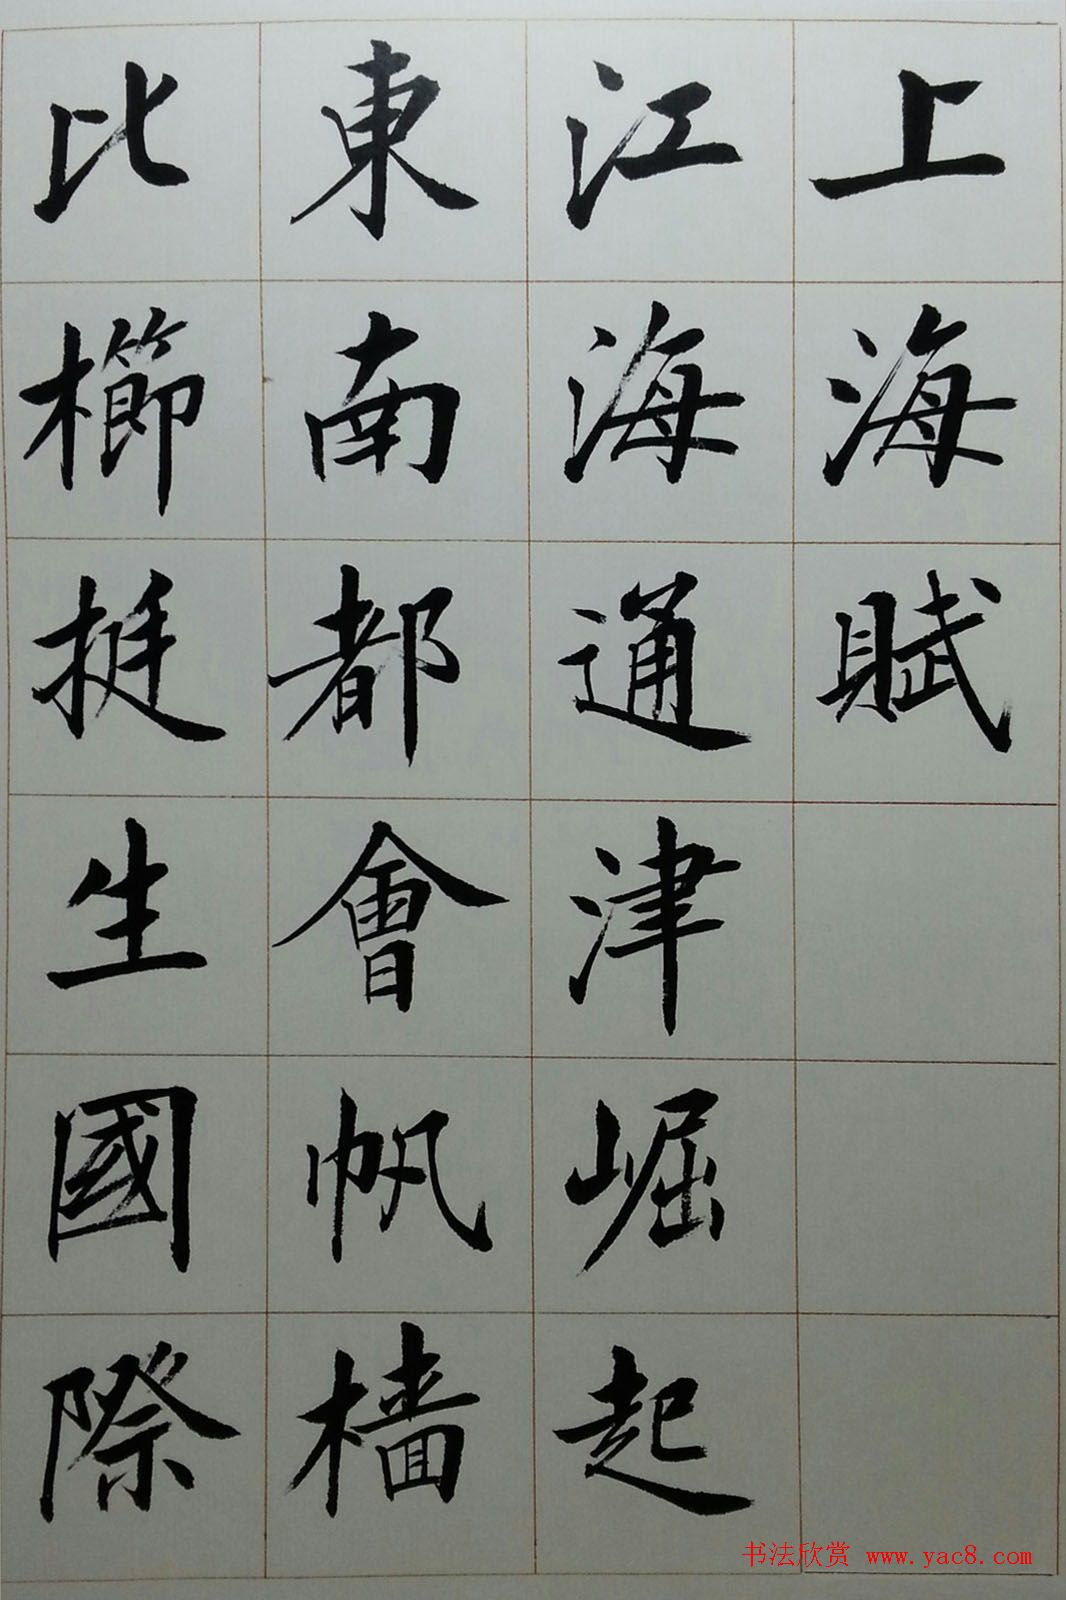 上海賦
江海通津崛起
東南都會帆檣
比櫛挺生國際
书法欣赏 www.yac8.com